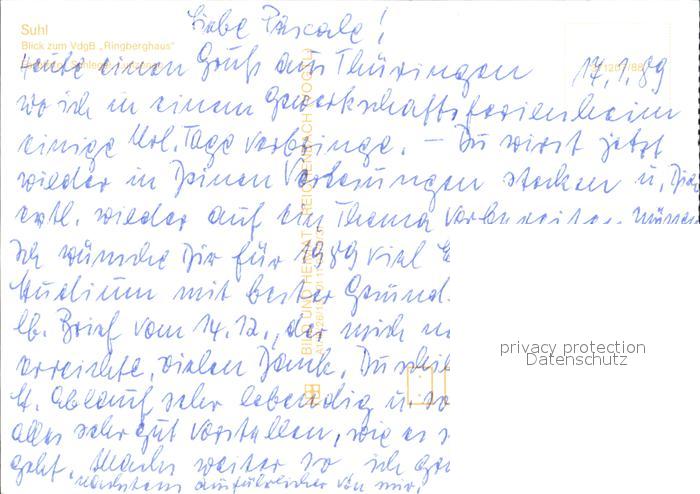 Liebe Pascale!
Suhl
Blick zum VdgB „Ringberghaus"
17.1.89
Heute einen Gruß aus Thüringen
wo ich in einem Gewerkschaftsferienheim
einige Url. Tage verbringe. – Du wirst jetzt
wieder in Deinen Vorlesungen stecken u. Dich
evtl. wieder auf ein Thema vorbereiten müssen
Ich wünsche Dir für 1989 viel E
Studium mit bester Gesund.
lb. Brief vom 14.12., der mich
erreichte, vielen Dank. Du
st. Ablauf sehr lebendig u. so
alles sehr gut vorstellen, wie es
geht. Mach weiter so ich
Nächstens ausführlicher von mir.
BILD UND HEIMAT REICHENBACH (VOGTL)
privacy protection
Datenschutz